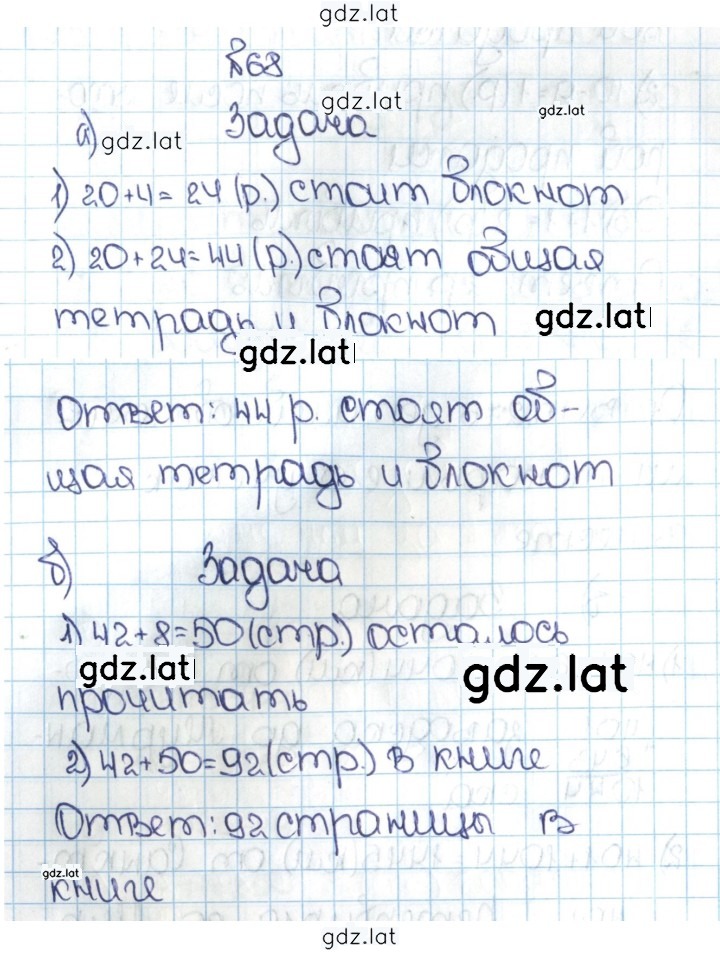 gdz.lat
№68
gdz.lat
gdz.lat
а) gdz.lat Задача
1) 20+4=24 (р.) стоит блокнот
2) 20+24=44 (р.) стоят общая
тетрадь и блокнот gdz.lat
gdz.lat
Ответ: 44 р. стоят об-
щая тетрадь и блокнот
б) Задача
1) 42+8=50 (стр.) осталось
gdz.lat gdz.lat
прочитать
2) 42+50=92 (стр.) в книге
Ответ: 92 страницы в
gdz.lat
книге
gdz.lat